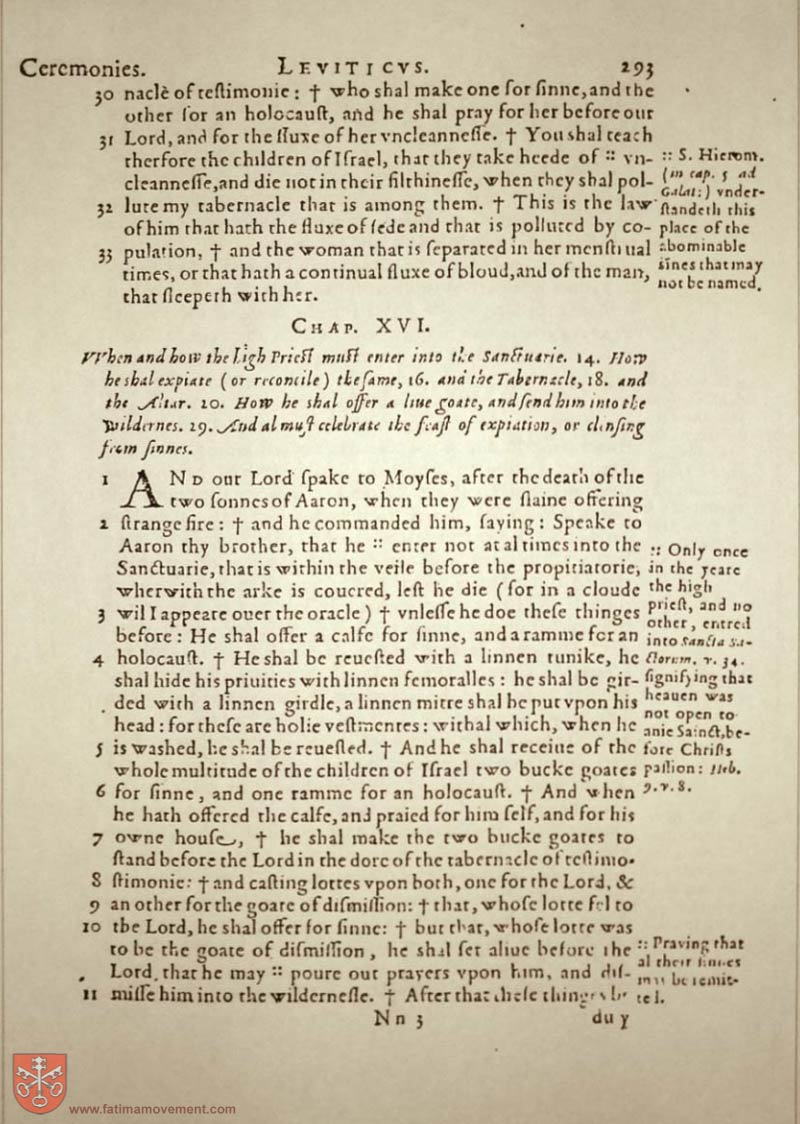 Ceremonies. LEVITICVS. 293
30 nacle of teſtimonie: † who shal make one for ſinne, and the
other for an holocauſt, and he shal pray for her before our
31 Lord, and for the fluxe of her vncleanneſſe. † You shal teach
therfore the children of Iſrael, that they take heede of :: vn-
cleanneſſe, and die not in their filthineſſe, when they shal pol-
32 lute my tabernacle that is among them. † This is the law
of him that hath the fluxe of ſede and that is polluted by co-
33 pulation, † and the woman that is ſeparated in her menſtrual
times, or that hath a continual fluxe of bloud, and of the man,
that ſleepeth with her.
:: S. Hierom.
(in cap. 5 ad
Galat:) vnder-
ſtandeth this
place of the
abominable
ſines that may
not be named.
CHAP. XVI.
VVhen and how the high Prieſt muſt enter into the Sanctuarie. 14. How
he shal expiate (or reconcile) the ſame, 16. and the Tabernacle, 18. and
the Altar. 20. How he shal offer a liue goate, and ſend him into the
Wildernes. 29. And al muſt celebrate the feaſt of expiation, or clenſing
from ſinnes.
1 AND our Lord ſpake to Moyſes, after the death of the
two ſonnes of Aaron, when they were ſlaine offering
2 ſtrange fire: † and he commanded him, ſaying: Speake to
Aaron thy brother, that he :: enter not at al times into the
Sanctuarie, that is within the veile before the propitiatorie,
wherwith the arke is couered, leſt he die (for in a cloude
3 wil I appeare ouer the oracle) † vnleſſe he doe theſe thinges
before: He shal offer a calfe for ſinne, and a ramme for an
4 holocauſt. † He shal be reueſted with a linnen tunike, he
shal hide his priuities with linnen femoralles: he shal be gir-
ded with a linnen girdle, a linnen mitre shal he put vpon his
head: for theſe are holie veſtmentes: withal which, when he
5 is washed, he shal be reueſted. † And he shal receiue of the
whole multitude of the children of Iſrael two bucke goates
6 for ſinne, and one ramme for an holocauſt. † And when
he hath offered the calfe, and praied for him ſelf, and for his
7 owne houſe, † he shal make the two bucke goates to
ſtand before the Lord in the dore of the tabernacle of teſtimo-
8 ſtimonie: † and caſting lottes vpon both, one for the Lord, &
9 an other for the goate of diſmiſſion: † that, whoſe lotte fel to
10 the Lord, he shal offer for ſinne: † but that, whoſe lotte was
to be the goate of diſmiſſion, he shal ſet aliue before the
Lord, that he may :: poure out prayers vpon him, and diſ-
11 miſſe him into the wilderneſſe. † After that theſe thinges be
:: Only once
in the yeare
the high
prieſt, and no
other, entred
into Sancta Sa-
ctorum. v. 34.
ſignifying that
heauen was
not open to
anie Sainct, be-
fore Chriſts
paſſion: Heb.
9. v. 8.
:: Praying that
al their ſinnes
may be remit-
ted.
Nn 3 duy
www.fatimamovement.com